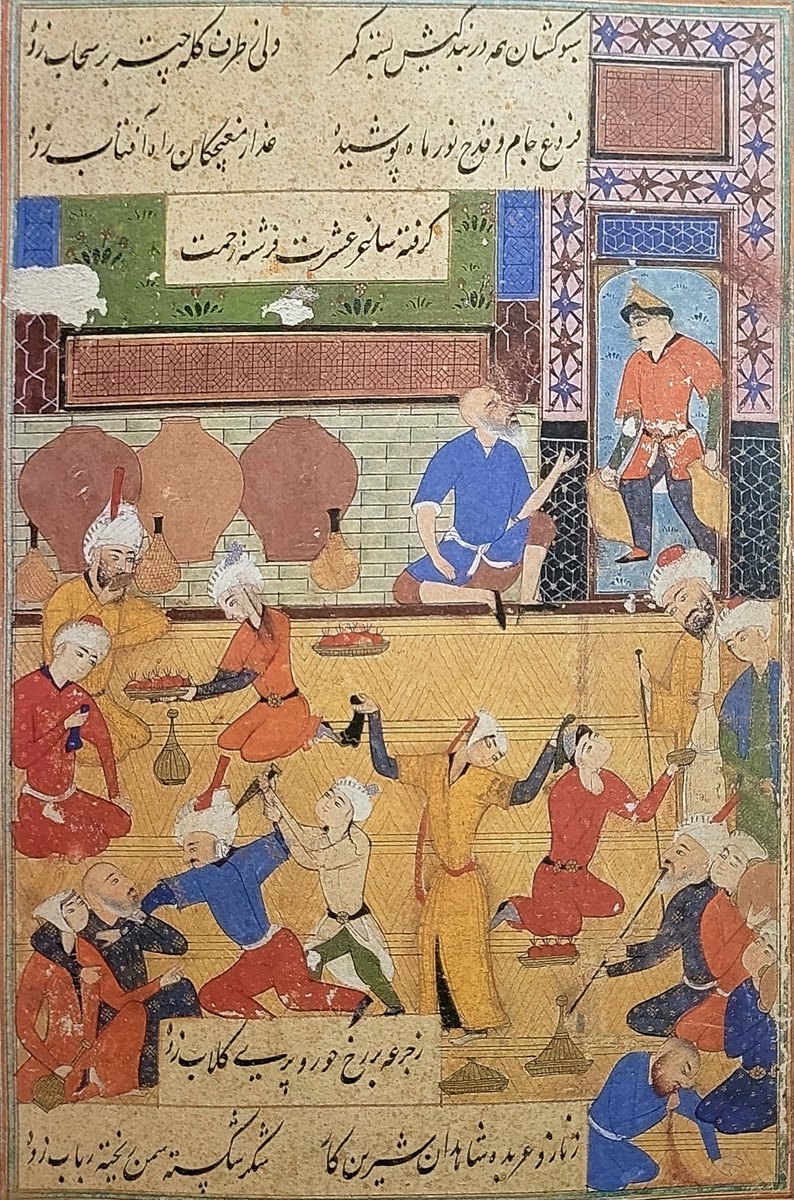 سبوکشان همه در بندگیش بسته کمر ولی ز طرف کله چتر بر سحاب زده
فروغ جام و قدح نور ماه پوشیده عذار مغبچگان راه آفتاب زده
گرفته ساغر عشرت فرشته رحمت
ز جرعه بر رخ حور و پری گلاب زده
ز ناز و عربده شاهدان شیرین کار شکر شکسته سمن ریخته رباب زده